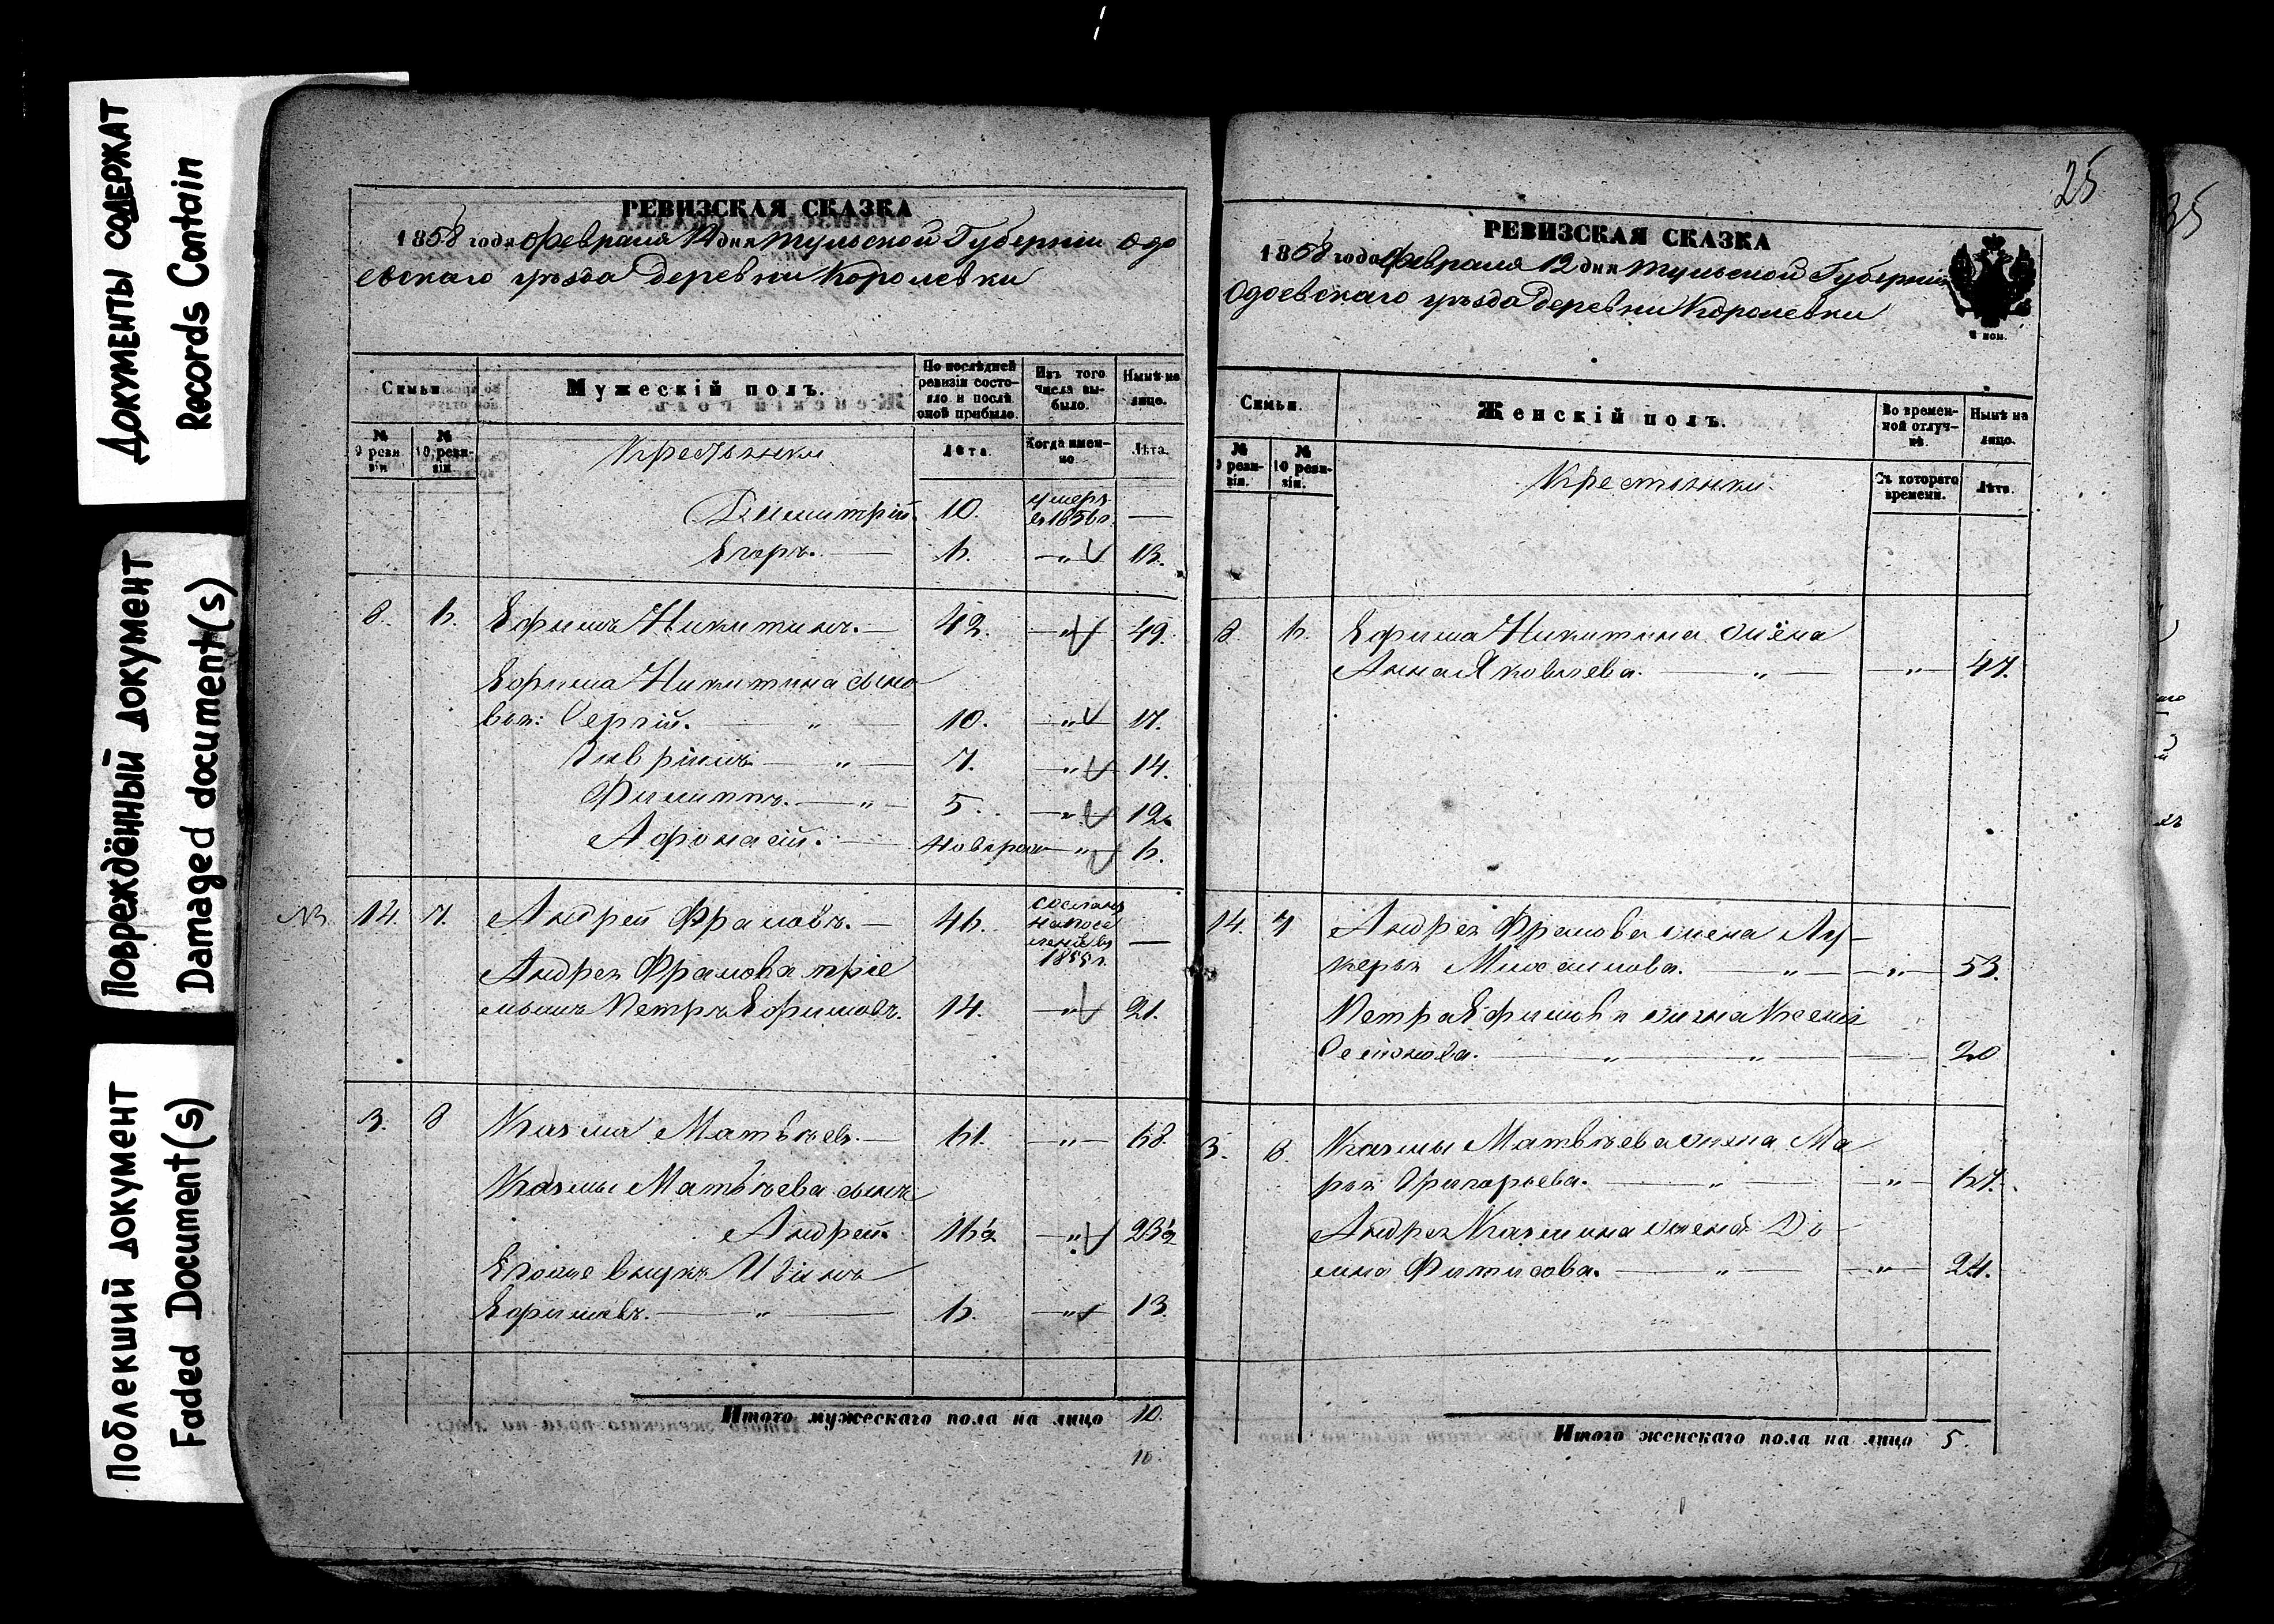 ДОКУМЕНТЫ СОДЕРЖАТ
Records Contain
Повреждённый документ
Damaged document(s)
Поблекший документ
Faded Document(s)
РЕВИЗСКАЯ СКАЗКА
1858 года Февраля 12 дня Тульской Губерніи Одо
евскаго уѣзда деревни Королевки
Семьи.
Мужескій полъ.
По послѣдней ревизіи состояло и послѣ оной прибыло.
Изъ того числа выбыло.
Нынѣ на лицо.
№ 9 ревизіи.
№ 10 ревизіи.
Крестьяне
Лѣта.
Когда именно
Лѣта.
Димитрій. 10. умеръ въ 1856 г. —
Егоръ. — 6. — „ — 13.
8. 6. Ефимъ Никитинъ. — 42. — „ — 49.
Ефима Никитина сыно
вья: Сергій. — „ — 10. — „ — 17.
Гавріилъ — „ — 7. — „ — 14.
Филиппъ. — „ — 5. — „ — 12.
Афонасій. — новорож — „ — 6.
NB 14. 7. Андрей Фроловъ. — 46. сосланъ на посе ленье въ 1855 г. —
Андрея Фролова пріе
мышъ Петръ Ефимовъ. 14. — „ — 21.
3. 8 Казма Матвѣевъ. — 61. — „ — 68.
Казмы Матвѣева сынъ
Андрей. 16½ — „ — 23½
Егоже внукъ Иванъ
Ефимовъ. — „ — 6. — „ — 13.
Итого мужескаго пола на лицо 10.
10
25
РЕВИЗСКАЯ СКАЗКА
1858 года Февраля 12 дня Тульской Губерніи
Одоевскаго уѣзда деревни Королевки
Семьи.
Женскій полъ.
Во временной отлучкѣ.
Нынѣ на лицо.
№ 9 ревизіи.
№ 10 ревизіи.
Крестьянки
Съ котораго времени.
Лѣта.
8 6. Ефима Никитина жена
Анна Яковлева. — „ — — „ — 47.
14. 7 Андрея Фролова жена Лу-
керья — „ — — „ — 53.
Петра Ефимова жена Ксенія
— „ — „ — 20
3. 8. Казмы Матвѣева жена Ма
рья Григорьева. — „ — — „ — 67.
Андрея Казмина жена До-
мна Фитисова. — „ — — „ — 24.
Итого женскаго пола на лицо 5
35